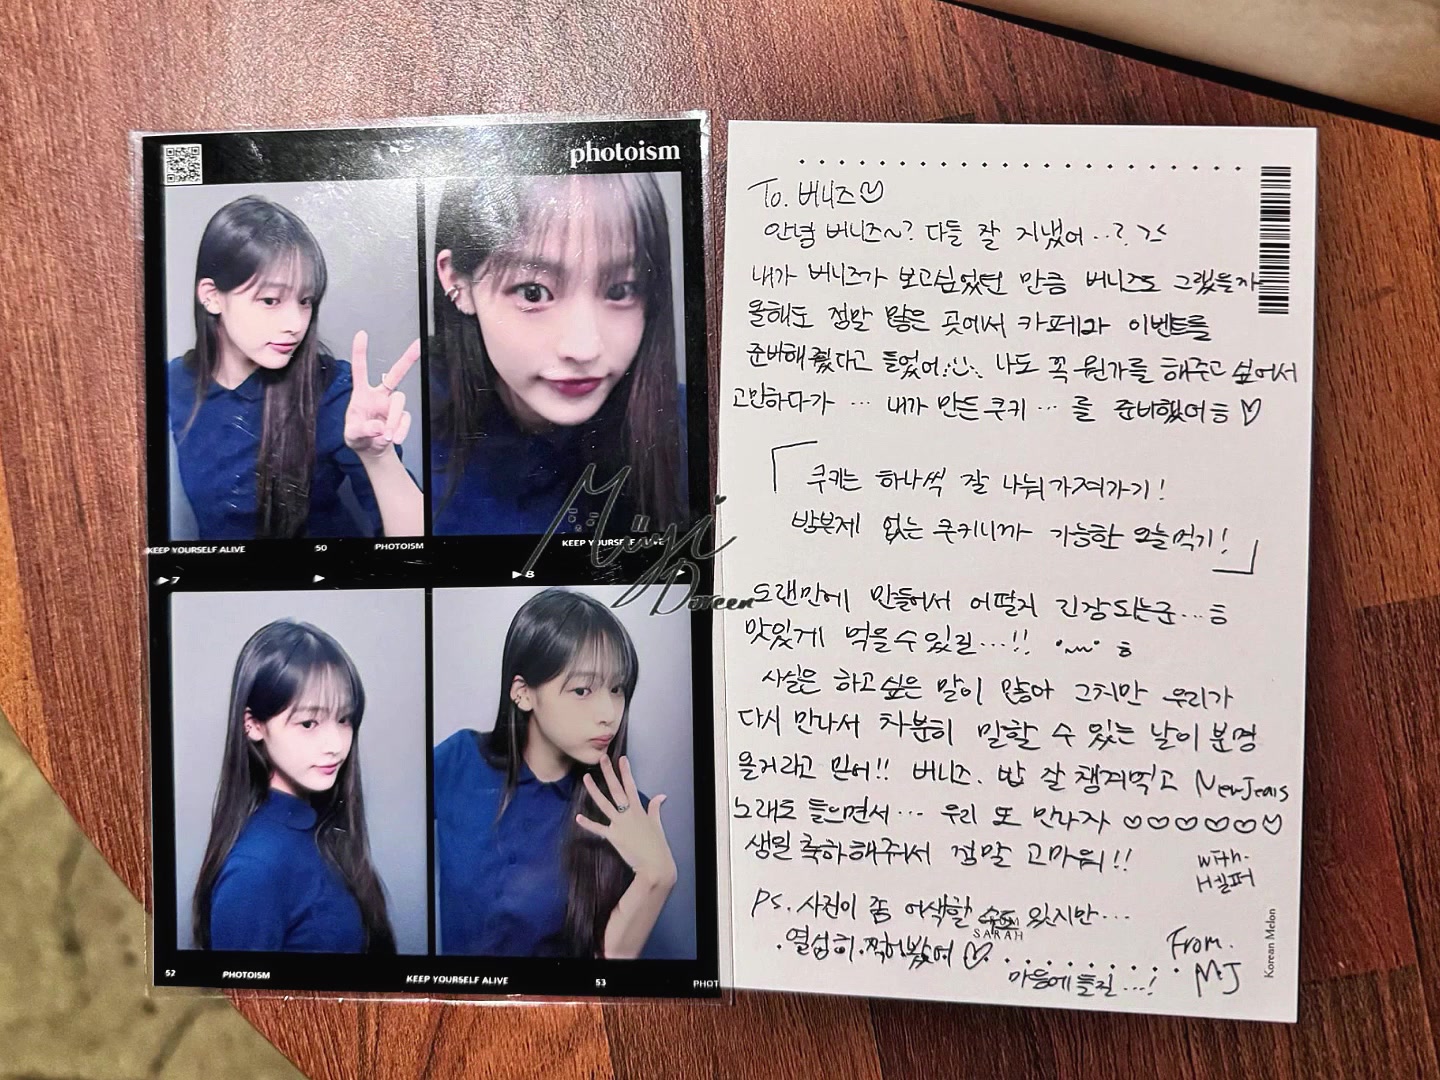 photoism
KEEP YOURSELF ALIVE
50
PHOTOISM
KEEP YOURSELF ALIVE
▶7
▶
▶8
52
PHOTOISM
KEEP YOURSELF ALIVE
53
PHOT
Doreen
To. 버니즈♡
안녕 버니즈~? 다들 잘 지냈어...?
내가 버니즈가 보고싶었던 만큼 버니즈도 그랬을까
올해도 정말 많은 곳에서 카페과 이벤트를
준비해줬다고 들었어 나도 꼭 뭔가를 해주고 싶어서
고민하다가 ... 내가 만든 쿠키 ... 를 준비했어ㅎ♡
「쿠키는 하나씩 잘 나눠가져가기!
방부제 없는 쿠키니까 가능한 오늘먹기!」
오랜만에 만들어서 어떨지 긴장되는군...ㅎ
맛있게 먹을수있길...!! ㅎ
사실은 하고싶은 말이 많아 그치만 우리가
다시 만나서 차분히 말할 수 있는 날이 분명
올거라고 믿어!! 버니즈. 밥 잘 챙겨먹고 NewJeans
노래도 들으면서... 우리 또 만나자 ♡♡♡♡♡♡
생일 축하해주어서 정말 고마워!!
with.
H셀퍼
Ps. 사진이 좀 어색할 수도 있지만...
열심히 찍어봤어♡
마음에 들길...!
From.
MJ
SARAH
Korean Melon